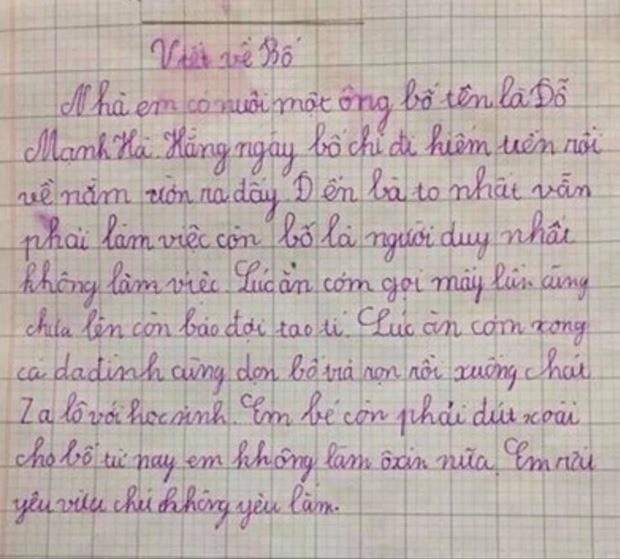 Viết về Bố
Nhà em có nuôi một ông bố tên là Đỗ
Mạnh Hà. Hằng ngày bố chỉ đi kiếm tiền rồi
về nằm ườn ra đấy. Đến bà to nhất vẫn
phải làm việc còn bố là người duy nhất
không làm việc. Lúc ăn cơm gọi mấy lần cũng
chưa lên còn bảo đợi tao tí. Lúc ăn cơm xong
cả da đình cùng dọn bố trả rọn rồi xuống chát
Za lô với học sinh. Em bé còn phải đút xoài
cho bố từ nay em không làm ôxin nữa. Em rất
yêu việc chứ không yêu lắm.